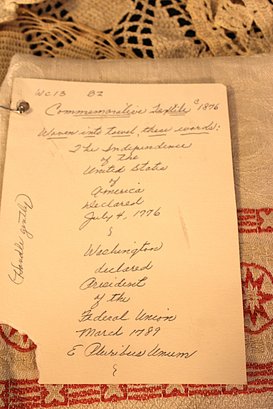 WC13 B2
Commemorative Textile c 1876
Woven into towel, these words:
The Independence
of the
United States
of
America
Declared
July 4, 1776
}
Washington
declared
President
of the
Federal Union
March 1789
E Pluribus Unum
}
(Handle gently)